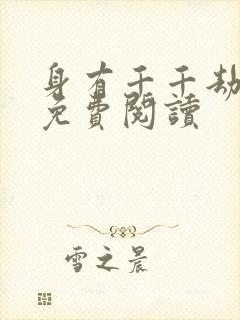 身有千千劫
免費閱讀
雪之晨